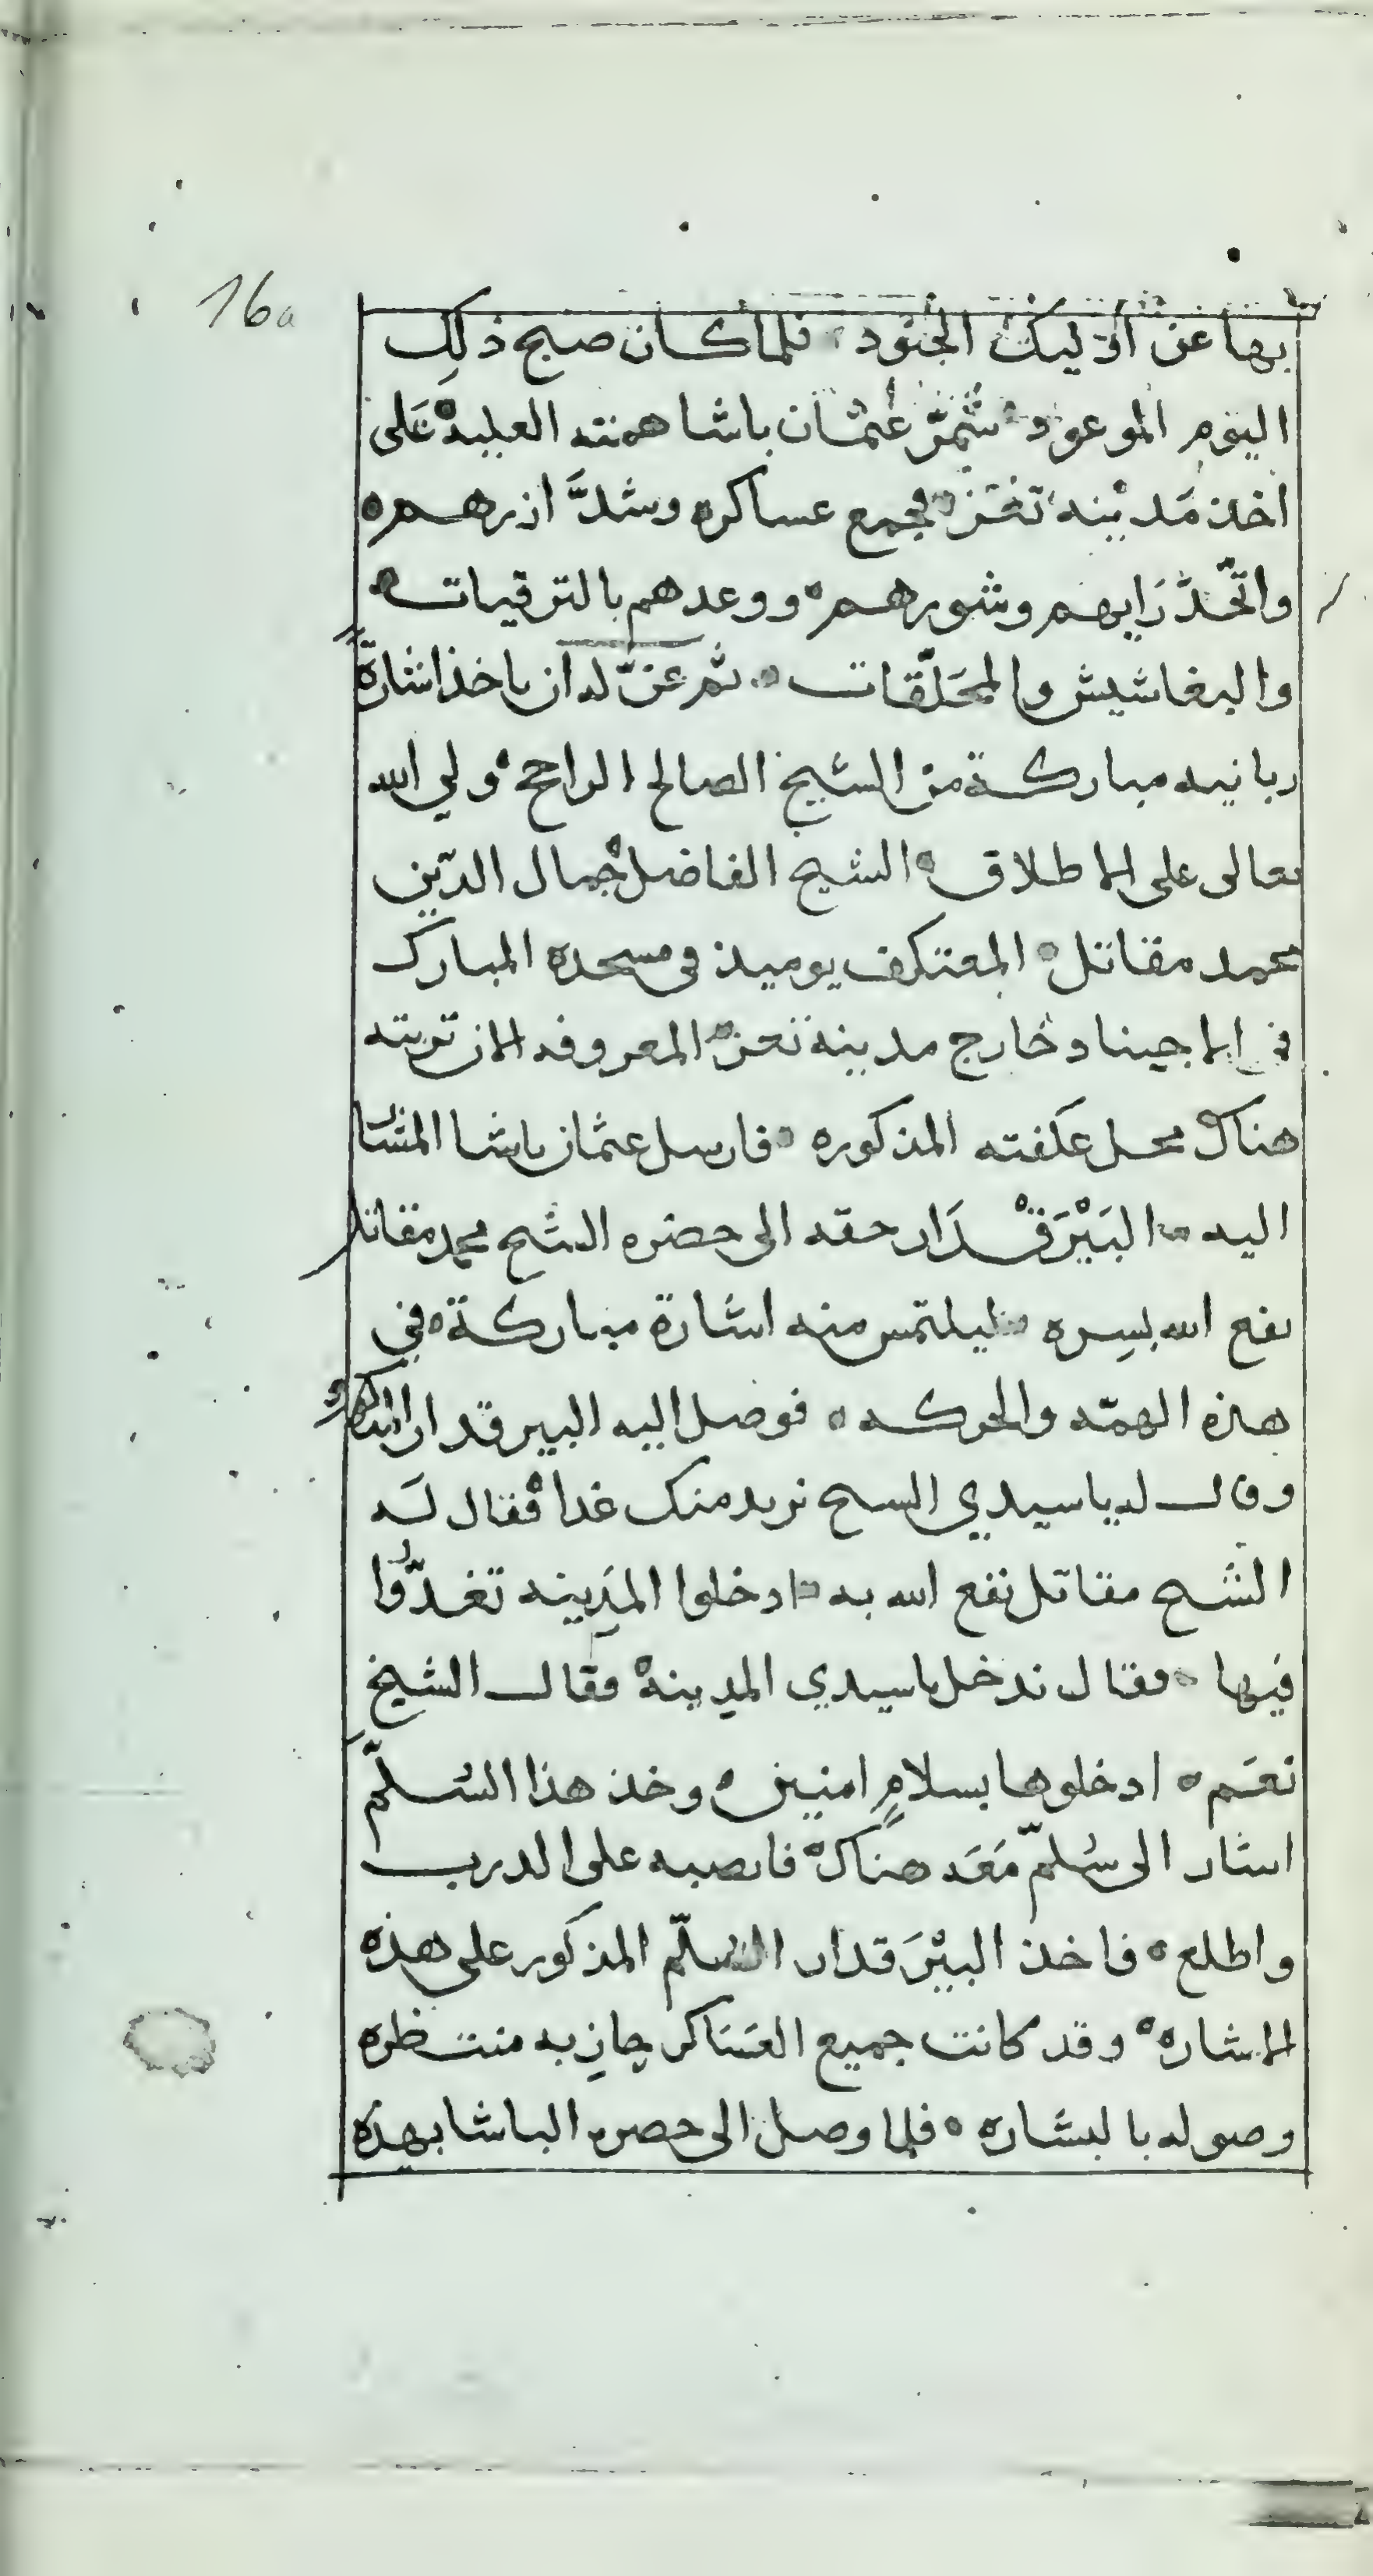 16a
بها عن اوليك الجنود ، فلما كان صبح ذلك
اليوم الموعود ، شمَّر عثمان باشا همته العليه ه على
اخذ مَدينه تعز ه فجمع عساكره وشدَّ ازرهم ه
واتحدَّ رَايهم وشورهم ه ووعدهم بالترقيات ه
والبغاشيش والمحَلّقات ه ثم عنّ له ان ياخذ اشارة
ربانيه مباركة من الشيخ الصالح الراجح ه ولي الله
تعالى على الاطلاق ه الشيخ الفاضل جمال الدّين
محمد مقاتل ه المعتكف يوميذ في مسجده المبارك
في الاجيناد خارج مدينه تعز ه المعروفه الان تربته
هناك محل عكفته المذكوره ه فارسل عثمان باشا المشا
اليه ه البَيْرَقْدَار حقه الى حضره الشيخ محمد مقاتل
نفع الله بسِره ه ليلتمس منه اشارة مباركة ه في
هذه الهمّه والحركه ه فوصل اليه البيرقدار المذكور
وقال له يا سيدي الشيخ نريد منك غدا ه فقال لَه
الشيخ مقاتل نفع الله به ه ادخلوا المدِينه تغدَّوا
فيها ه فقال ندخل يا سيدي المدِينه ه فقال الشيخ
نعَم ه ادخلوها بسلامٍ امنين ه وخذ هذا السُلّم
اشار الى سُلمّ مَعَه هناك ه فانصبه على الدرب
واطلع ه فاخذ البيْرَقدار السلّم المذكور على هذه
الاشاره ه وقد كانت جميع العسَاكر جازبه منتظره
وصوله بالبشاره ه فلما وصل الى حضره الباشا بهذه